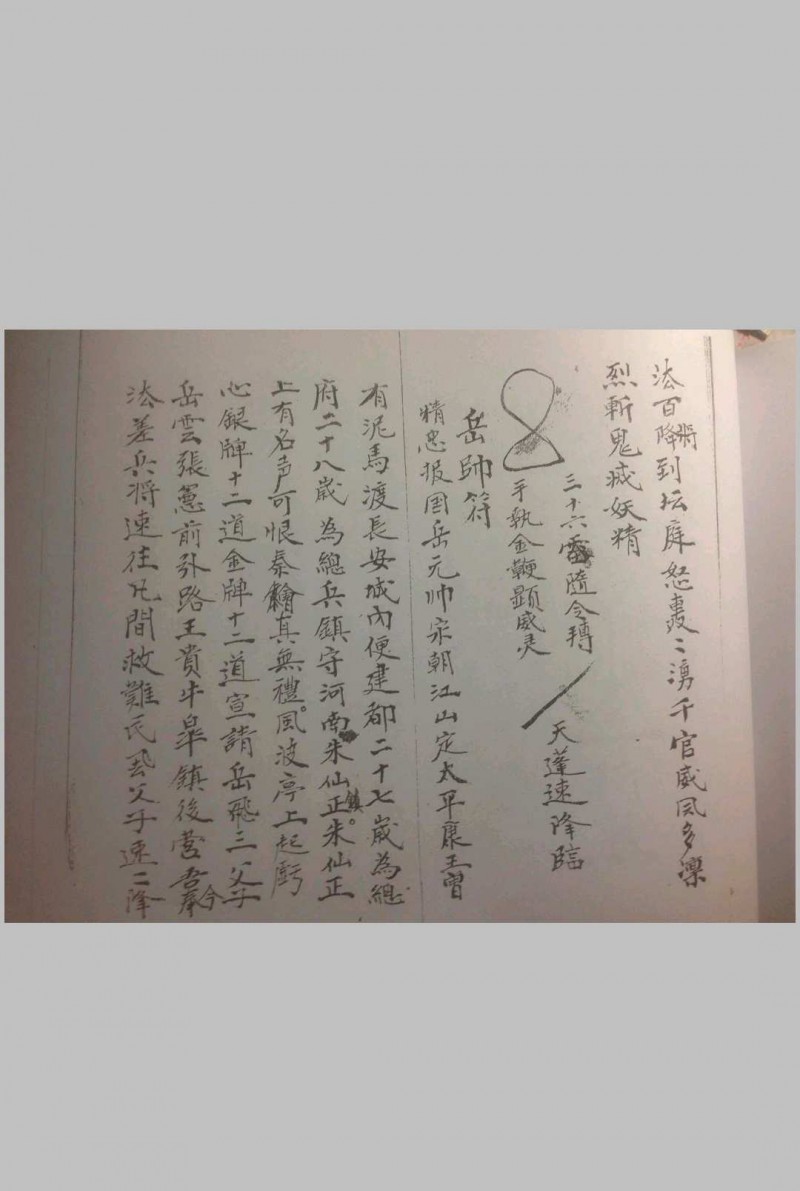 法百將降到坛庭怒轰二湧千官威风多凛
烈斬鬼滅妖精
三十六雷隨令轉
手執金鞭顕威灵
天蓬速降臨
岳帥符
精忠报国岳元帅宋朝江山定太平康王曽
有泥馬渡長安城内便建都二十七歳為總
府二十八歳為總兵鎮守河南朱仙正鎮。朱仙正
上有名声可恨秦檜真無禮。風波亭上起虧
心銀牌十二道金牌十二道宣請岳飛三父子
岳雲张憲前引路王貴牛皋鎮後营吾奉今
法差兵将速往凡間救難民岳父子速二降